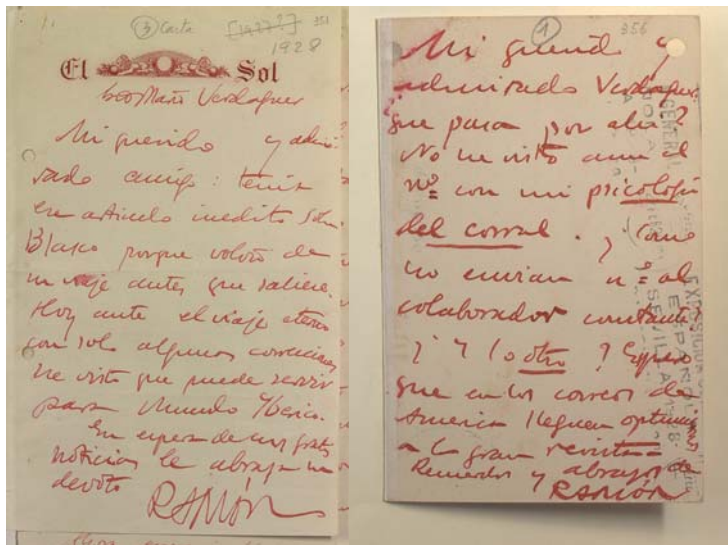 ③ Carta [1927?] 351
1928
El Sol
Verdaguer
Mi querido y admi
rado amigo: tenía
un artículo inedito sobre
Blasco porque voloto de
un viaje antes que saliese.
Hoy ante el viaje eterno
con solo algunas correcciones
he visto que puede servir
para Mundo Iberico.
En espera de sus gratas
noticias le abraza su
devoto
RAMÓN
① 356
Mi querido y
admirado Verdaguer:
que pasa por ahi?
No he visto aun el
nº con mi psicología
del corral. ¿ como
no envian nº al
colaborador constante
? ¿ Y lo otro? Espero
que en los correos de
America lleguen optimas
a la gran revista
Recuerdos y abrazos de
RAMÓN
GENERAL
EXPOSICION
ESPAÑOL
SEVILLA